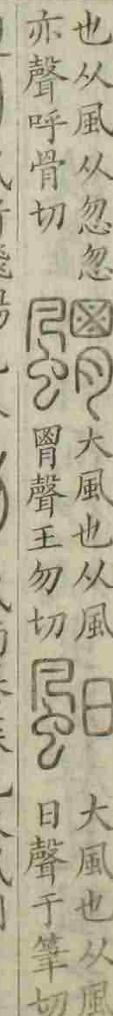 也从風从忽忽
亦聲呼骨切
䬑
大風也从風
胃聲王勿切
䫻
大風也从風
日聲于筆切